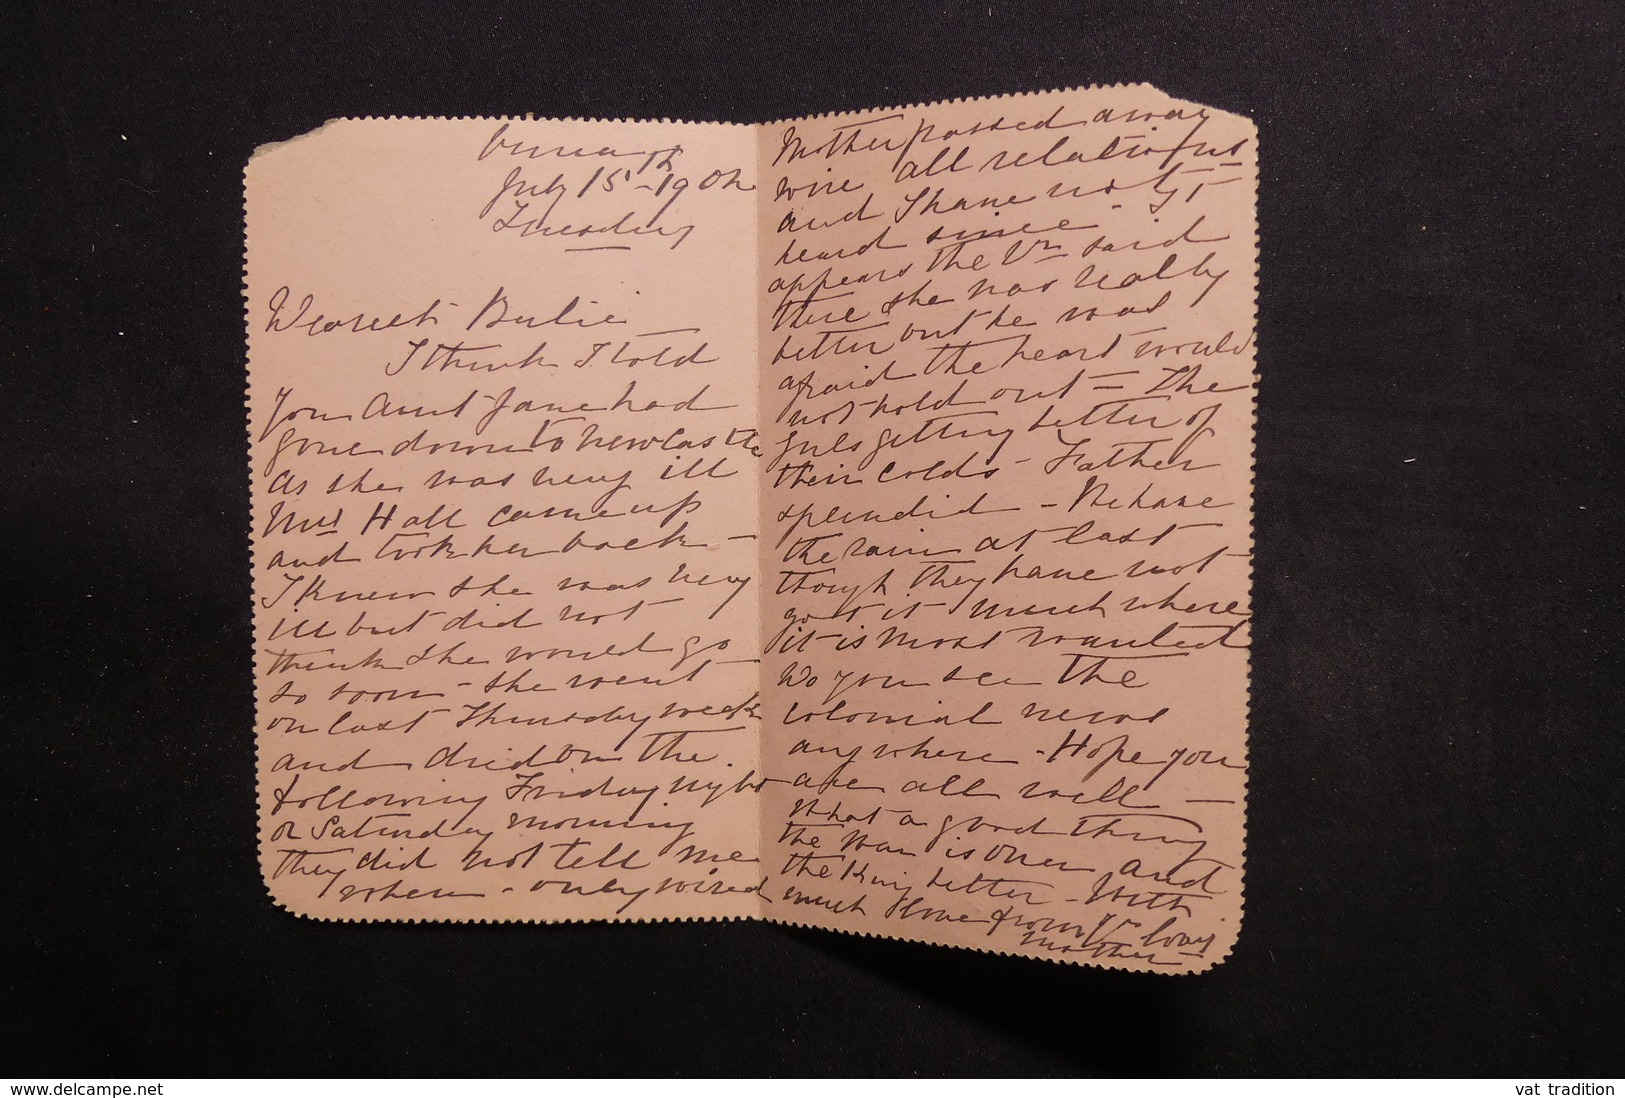 July 15th - 1902
Tuesday
Dearest Bertie
I think I told
you Aunt Jane had
gone down to Newcastle
as she was very ill
Mrs Hall came up
and took her back -
I knew she was very
ill but did not
think she would go
so soon - she went
on last Thursday week
and died on the
following Friday night
or Saturday morning
they did not tell me
when - only wired
Mother passed away
wire all relations
and I have not
heard since - It
appears the Dr said
there she was really
better but he was
afraid the heart would
not hold out = The
girls getting better of
their colds - Father
splendid - We have
the rain at last
though they have not
got it much where
it is most wanted
Do you see the
colonial news
anywhere - Hope you
are all well -
What a good thing
the War is over and
the King better - With
much love from Yr lovg
Mother
www.delcampe.net
vat tradition